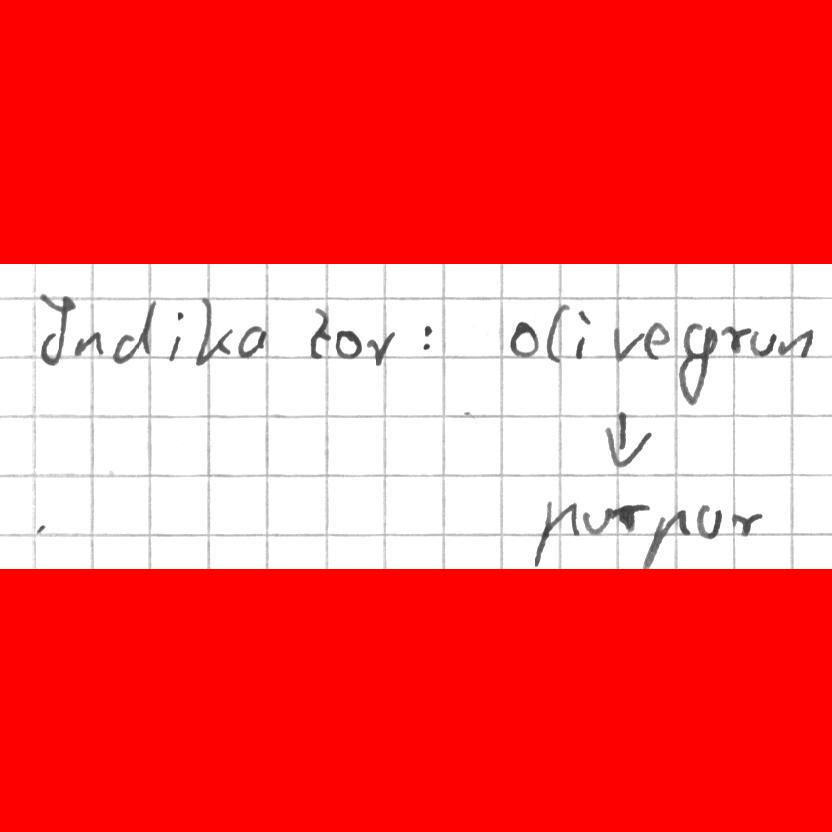 Indikator: olivegrun
↓
purpur